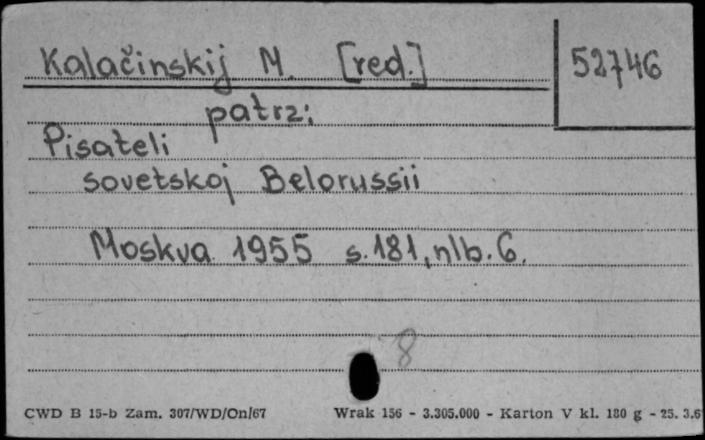 Kalačinskij M. [red.] 52746
patrz:
Pisateli
sovetskoj Belorussii
Moskva 1955 s. 181, nlb. 6.
8
CWD B 15-b Zam. 307/WD/On/67 Wrak 156 - 3.305.000 - Karton V kl. 180 g - 25. 3.6